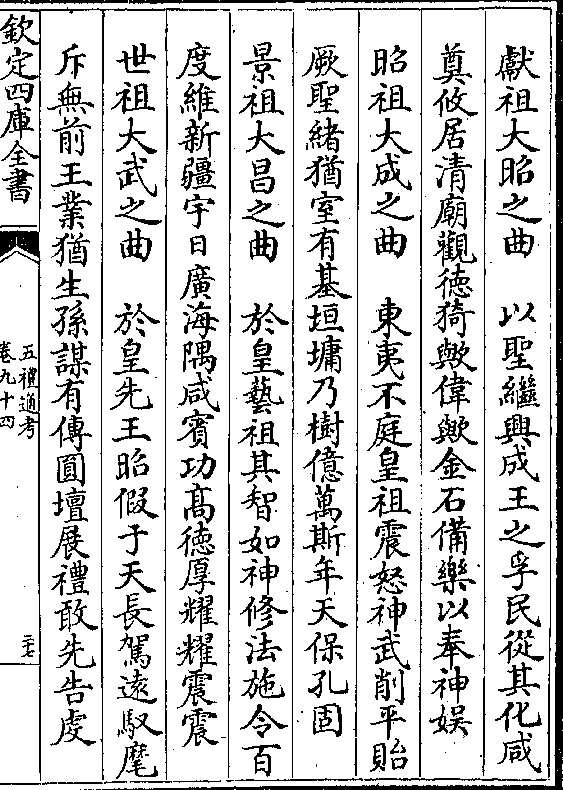 獻祖大昭之曲　以聖繼興成王之孚民從其化咸
奠攸居清廟觀徳猗歟偉歟金石備樂以奉神娱
昭祖大成之曲　東夷不庭皇祖震怒神武削平貽
厥聖緒猶室有基垣墉乃樹億萬斯年天保孔固
景祖大昌之曲　於皇藝祖其智如神修法施令百
度維新疆宇日廣海隅咸賓功髙徳厚耀耀震震
世祖大武之曲　於皇先王昭假于天長駕逺馭麾
斥無前王業猶生孫謀有傳圓壇展禮敢先告虔
欽定四庫全書
五禮通考
卷九十四
二十七